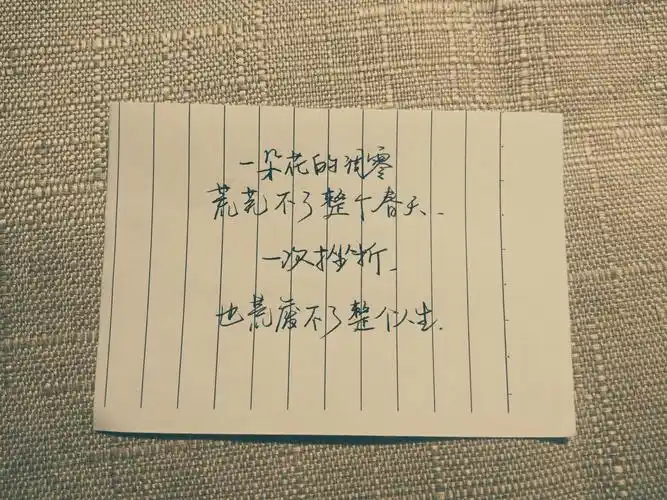 一朵花的凋零
荒芜不了整个春天..
一次挫折.
也荒废不了整个人生.